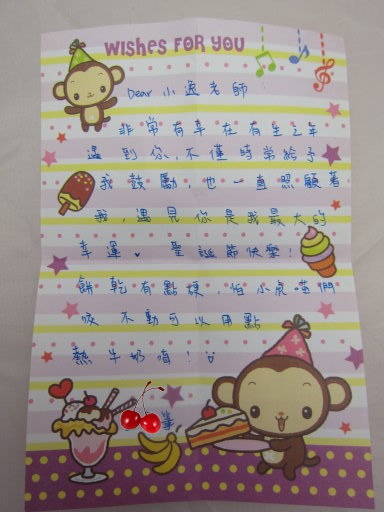 WISHES FOR YOU
Dear 小逸老師:
非常有幸在有生之年
遇到你,不僅時常給予
我鼓勵,也一直照顧著
我,遇見你是我最大的
幸運。聖誕節快樂!
餅乾有點硬,怕小虎
咬不動可以用點
熱牛奶
筆